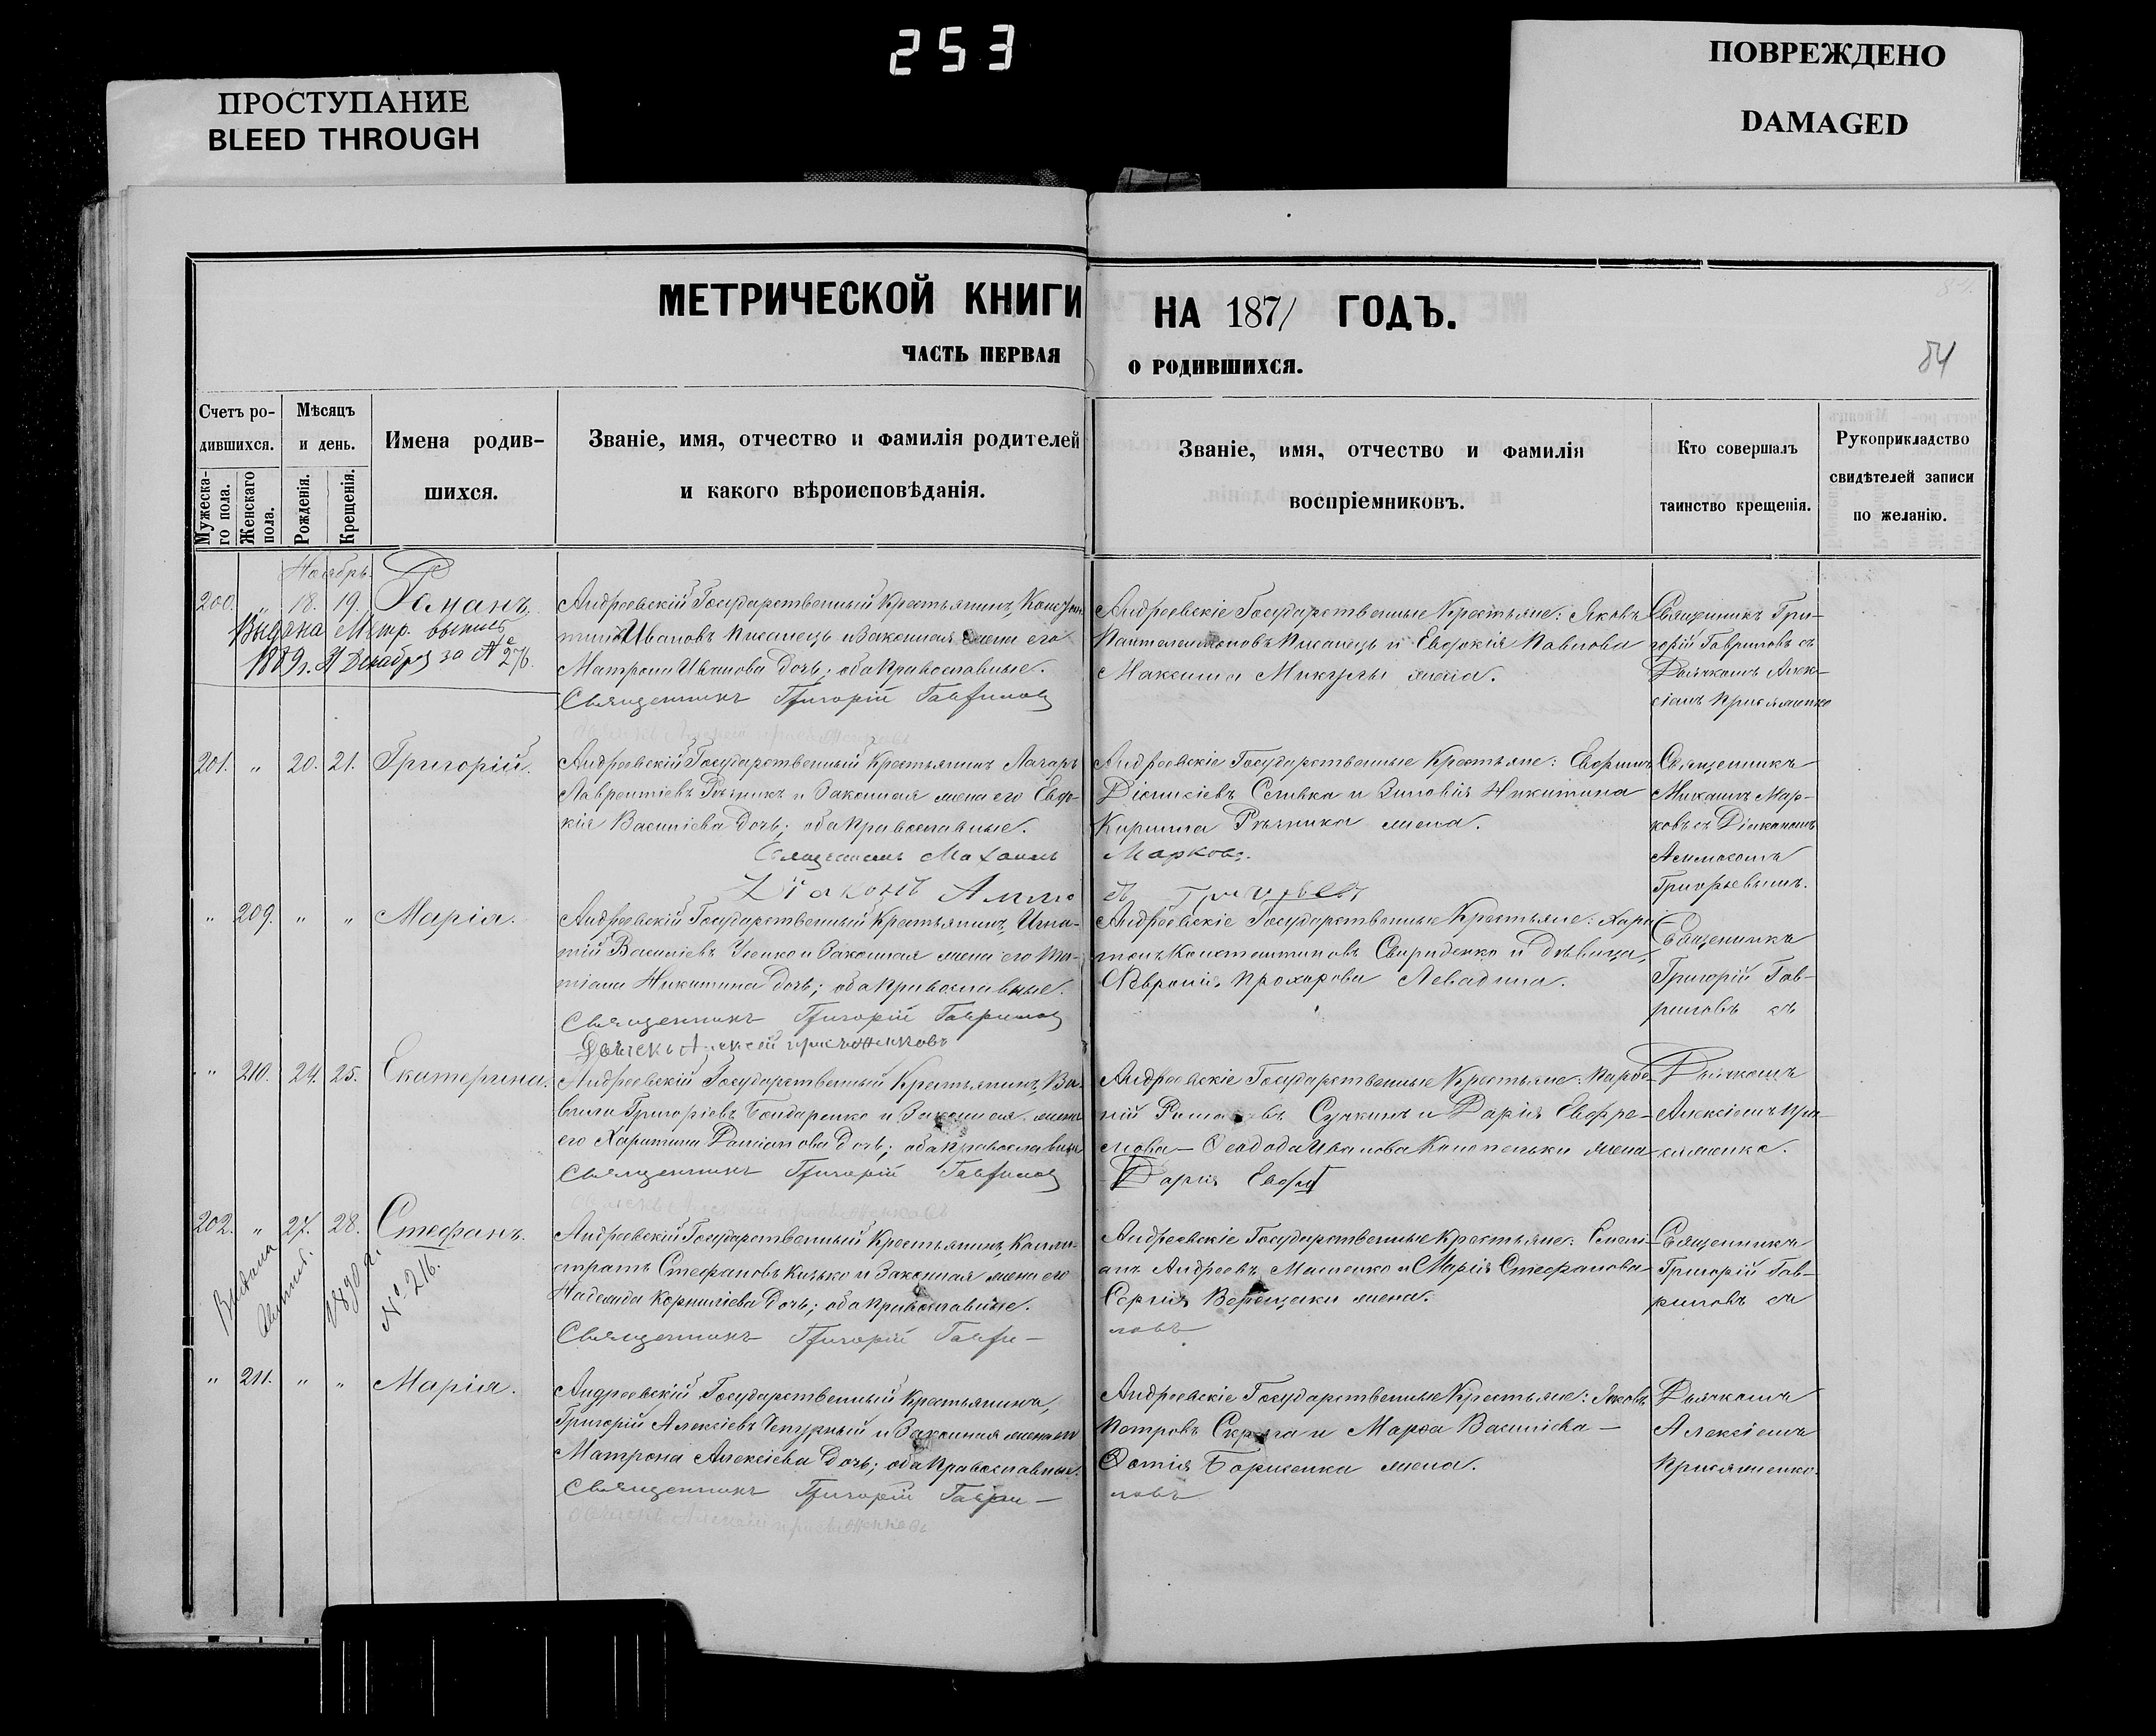 253
ПРОСТУПАНИЕ
BLEED THROUGH
ПОВРЕЖДЕНО
DAMAGED
МЕТРИЧЕСКОЙ КНИГИ НА 1871 ГОДЪ.
ЧАСТЬ ПЕРВАЯ О РОДИВШИХСЯ.
84
Счетъ ро-
дившихся.
Мужеска-
го пола.
Женскаго
пола.
Мѣсяцъ
и день.
Рожденія.
Крещенія.
Имена родив-
шихся.
Званіе, имя, отчество и фамилія родителей
и какого вѣроисповѣданія.
Званіе, имя, отчество и фамилія
воспріемниковъ.
Кто совершалъ
таинство крещенія.
Рукоприкладство
свидѣтелей записи
по желанію.
Ноябрь.
200. " 18. 19. Романъ.
Выдана Метр.
1889 г. Декабря за №
276.
Андреевскій Государственный Крестьянинъ, Констан
тинъ Ивановъ Писанецъ и Законная жена его
Матрона Иванова дочь; оба Православные.
Священникъ Григорій Гаврилов
Андреевскіе Государственные Крестьяне: Яковъ
Пантелеимоновъ Писанецъ и Евдокія Павлова
Максима Микулы жена.
Священникъ Гри-
горій Гавриловъ съ
Дьячкомъ Алек-
сіемъ
201. " 20. 21. Григорій.
Андреевскій Государственный Крестьянинъ Лазарь
Лаврентіевъ Рѣзникъ и Законная жена его Евдо-
кія Василіева дочь; оба Православные.
Священникъ Михаилъ Марковъ.
Діаконъ
Андреевскіе Государственные Крестьяне: Ефримъ
Діонисіевъ Сливка и Зиновія Никитина
Кирилла Рѣзника жена.
Священникъ
Михаилъ Мар-
ковъ съ Діакономъ
Григорьевымъ.
" 209. " " Марія.
Андреевскій Государственный Крестьянинъ, Игна-
тій Василіевъ и Законная жена его Та-
тіана Никитина дочь; оба Православные.
Священникъ Григорій Гаврилов
Дьячекъ Алексей
Андреевскіе Государственные Крестьяне: Хари-
тонъ Константиновъ Свириденко и дѣвица,
Февронія Прохорова Левадина.
Священникъ
Григорій Гав-
риловъ съ
" 210. 24. 25. Екатерина.
Андреевскій Государственный Крестьянинъ, Ва-
вила Григоріевъ Бондаренко и Законная жена
его Харитина Даміанова дочь; оба Православные
Священникъ Григорій Гаврилов
Андреевскіе Государственные Крестьяне: Парфе-
ній Сучкинъ и Дарія Евфре-
мова — Феодода Иванова Конопельки жена
Дарія
Дьячкомъ
Алексіемъ При-
сяженко.
202. " 27. 28. Стефанъ.
Выдана
1890 г.
№ 216.
Андреевскій Государственный Крестьянинъ, Калли-
стратъ Стефановъ Кизько и Законная жена его
Надежда Корниліева дочь; оба Православные.
Священникъ Григорій Гаври-
ловъ
Андреевскіе Государственные Крестьяне:
Андреевъ Мащенко и Марія Стефанова
Сергія Верещаки жена.
Священникъ
Григорій Гав-
риловъ съ
" 211. " " Марія.
Андреевскій Государственный Крестьянинъ,
Григорій Алексіевъ Чепурный и Законная жена его
Матрона Алексіева дочь; оба Православные.
Священникъ Григорій Гаври-
ловъ
Андреевскіе Государственные Крестьяне: Яковъ
Петровъ Скряга и Марфа Василіева —
Фотія Борисенка жена.
Дьячкомъ
Алексіемъ
Присяженко.